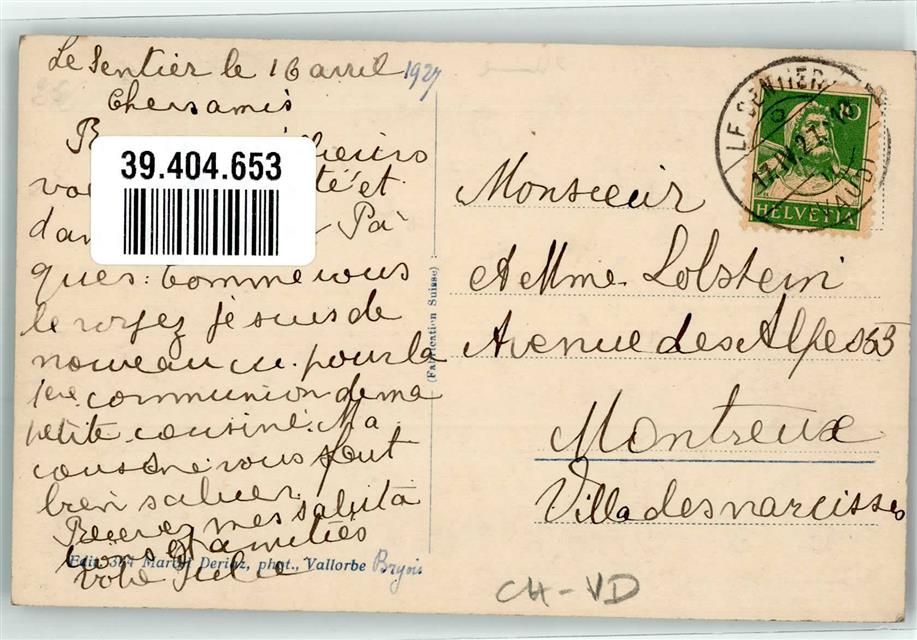 Le Sentier le 16 avril 1927
Chers amis
39.404.653
té et
Pâ
ques. Comme vous
le voyez je suis de
nouveau ici pour la
1ère communion de ma
petite cousine. Ma
cousine vous fait
bien saluer
Recevez mes saluts à
tous et amitiés
Votre Julie
Edit. Martel Deriaz, phot., Vallorbe
(Fabrication Suisse)
LE SENTIER
17.IV.27.-18
(VAUD)
10
HELVETIA
Monsieur
et Mme. Lobstein
Avenue des Alpes 53
Montreux
Villa des narcisses
CH-VD